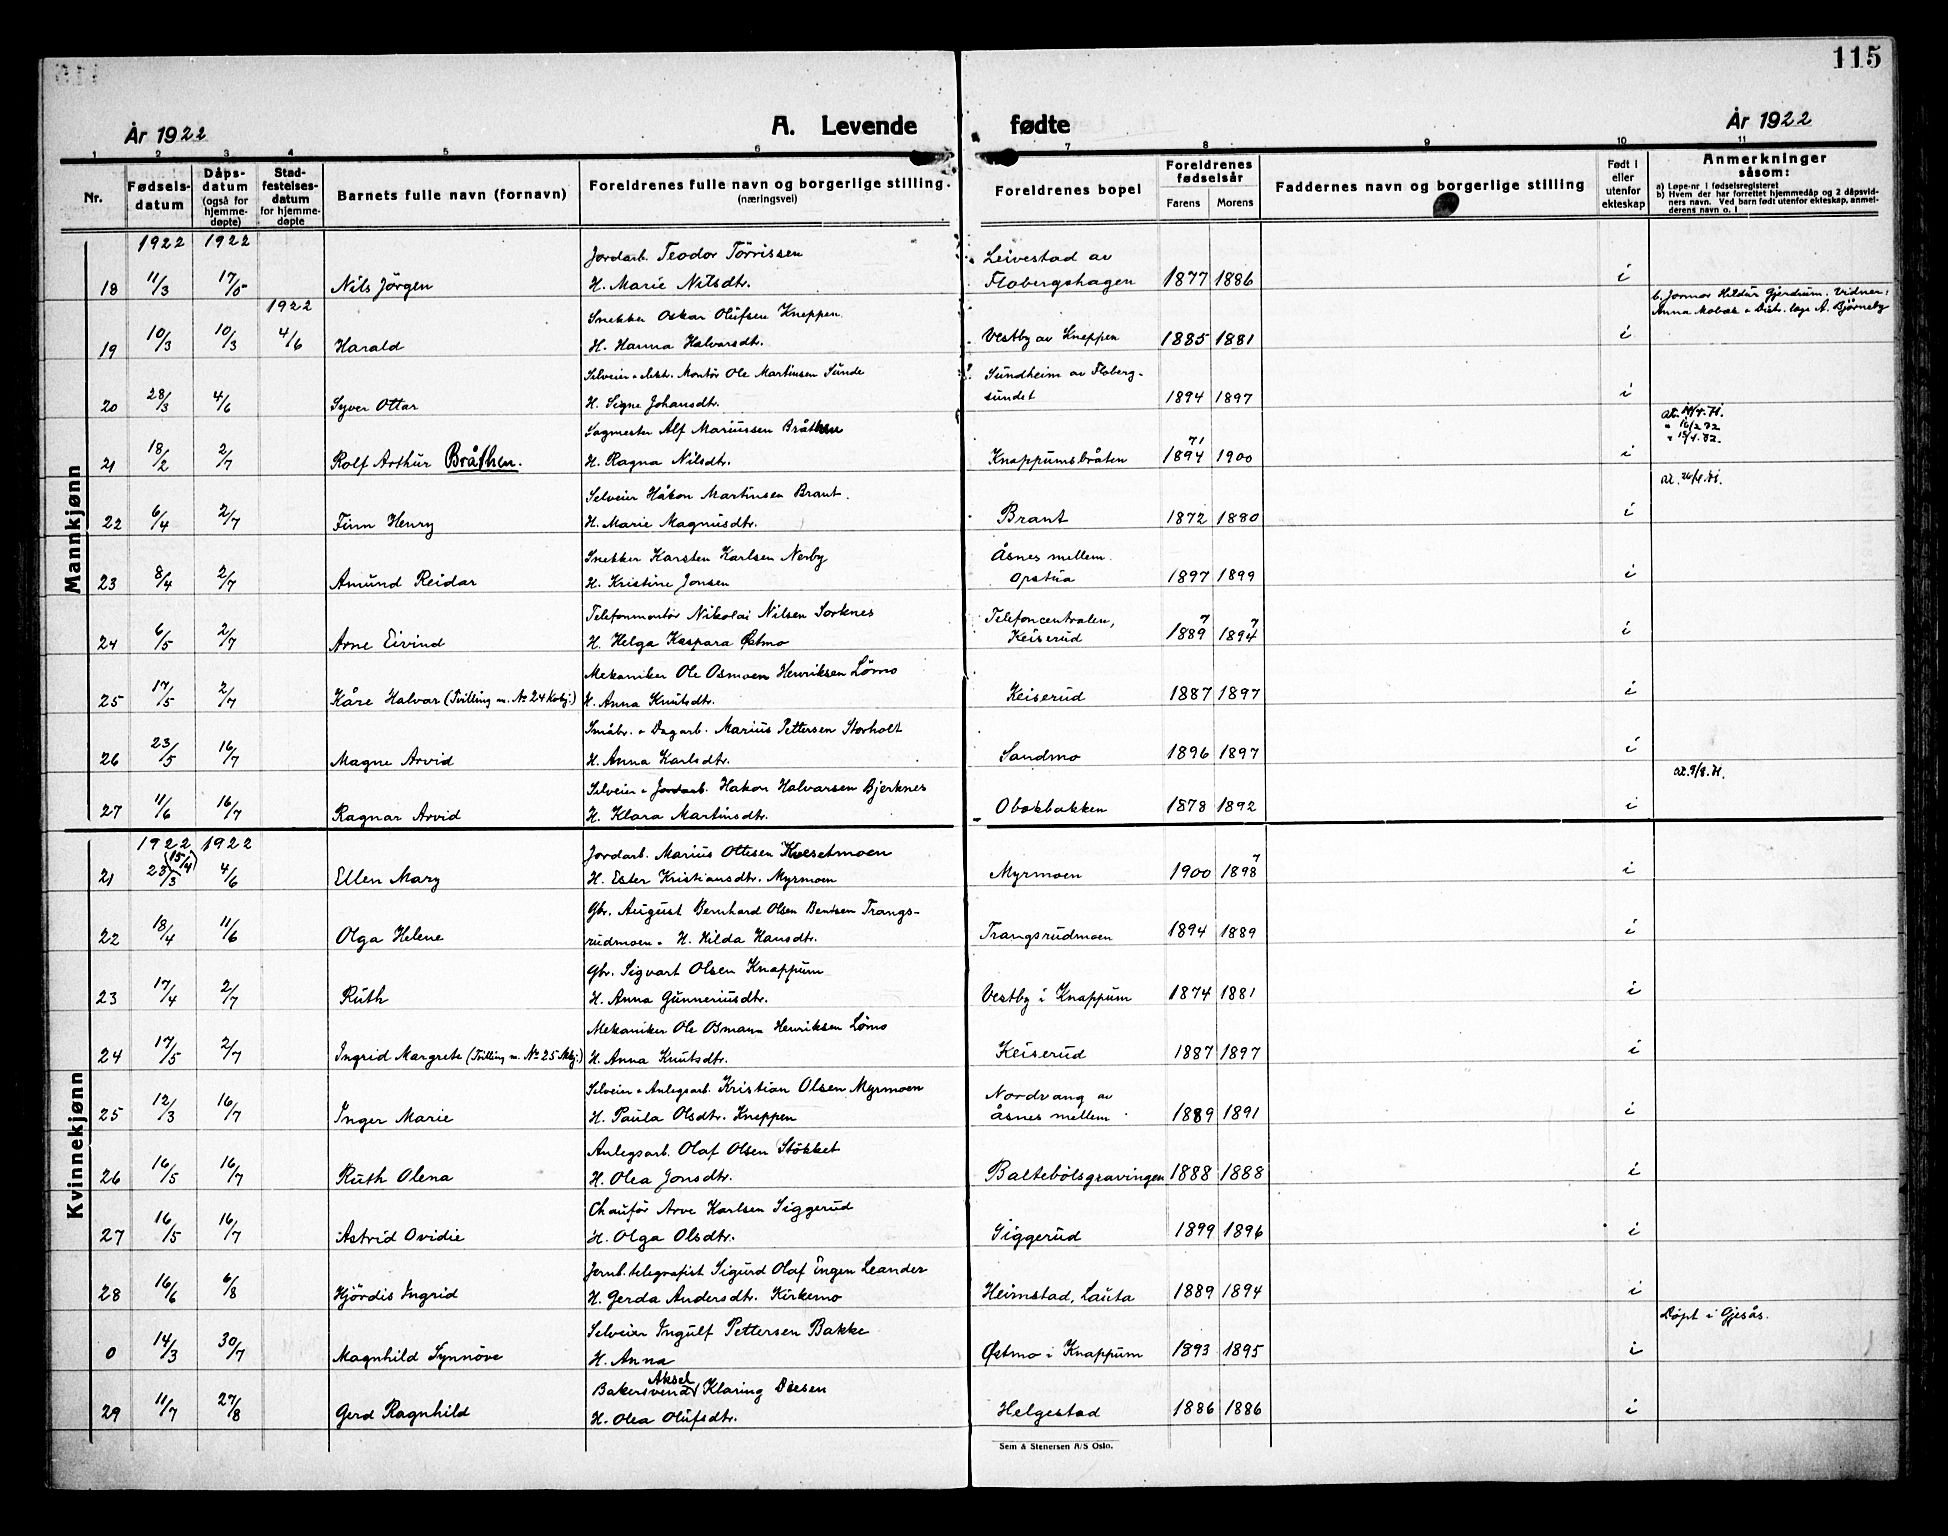 115
År 1922
A. Levende fødte
År 1922
1 2 3 4 5 6 7 8 9 10 11
Nr.
Fødsels-
datum
Dåps-
datum
(også for
hjemme-
døpte)
Stad-
festelses-
datum
for hjemme-
døpte
Barnets fulle navn (fornavn)
Foreldrenes fulle navn og borgerlige stilling.
(næringsvei)
Foreldrenes bopel
Foreldrenes
fødselsår
Farens Morens
Faddernes navn og borgerlige stilling
Født i
eller
utenfor
ekteskap
Anmerkninger
såsom:
a) Løpe-nr i fødselsregisteret
b) Hvem der har forrettet hjemmedåp og 2 dåpsvid-
ners navn. Ved barn født utenfor ekteskap, anmel-
derens navn o. l
Mannkjønn
1922 1922
Jordarb. Teodor Törrissen Leivestad av
18 11/3 17/5 Nils Jörgen H. Marie Nilsdtr. Flobergshagen 1877 1886 i
1922
Snekker Oskar Olufsen Kneppen b. Jormor Hildur Gjerdrum. Vidner:
Anna Mobæk & Distr. læge A. Bjørneby
19 10/3 10/3 4/6 Harald H. Hanna Halvarsdtr. Vestby av Kneppen 1885 1881 i
Selveier & elektr. Montör Ole Martinsen Sunde Sundheim av Floberg-
20 28/3 4/6 Syver Ottar H. Signe Johansdtr. sundet 1894 1897 i
Sagmester Alf Mariussen Bråthen
21 18/2 2/7 Rolf Arthur Bråthen. H. Ragna Nilsdtr. Knappumsbråten 1894 1900 i
Selveier Håkon Martinsen Brant.
22 6/4 2/7 Finn Henry H. Marie Magnusdtr. Brant 1872 1880 i
Snekker Karsten Karlsen Nerby Åsnes mellem.
23 8/4 2/7 Amund Reidar H. Kristine Jonsen Opstua 1897 1899 i
Telefonmontör Nikolai Nilsen Sorknes Telefoncentralen,
24 6/5 2/7 Arne Eivind H. Helga Kaspara Østmo Keiserud 1889 1894 i
Mekaniker Ole Osmoen Henriksen Lömo
25 17/5 2/7 Kåre Halvar (Tvilling m. No 24 Kvkj.) H. Anna Knutsdtr. Keiserud 1887 1897 i
Småbr. & Dagarb. Marius Pettersen Storholt
26 23/5 16/7 Magne Arvid H. Anna Karlsdtr. Sandmo 1896 1897 i
Selveier & Jordarb. Hakon Halvarsen Bjerknes
27 11/6 16/7 Ragnar Arvid H. Klara Martinsdtr. Obækbakken 1878 1892 i
Kvinnekjønn
1922 1922
Jordarb. Marius Ottesen Kvesetmoen
21 23/3 (15/4) 4/6 Ellen Mary H. Ester Kristiansdtr. Myrmoen Myrmoen 1900 1898 i
Gbr. August Bernhard Olsen Bentsen Trangs-
22 18/4 11/6 Olga Helene rudmoen & H. Hilda Hansdtr. Trangsrudmoen 1894 1889 i
Gbr. Sigvart Olsen Knappum
23 17/4 2/7 Ruth H. Anna Gunneriusdtr. Vestby i Knappum 1874 1881 i
Mekaniker Ole Osmann Henriksen Lömo
24 17/5 2/7 Ingrid Margrete (Tvilling m. No 25 Mkj.) H. Anna Knutsdtr. Keiserud 1887 1897 i
Selveier & Anlegsarb. Kristian Olsen Myrmoen Nordvang av
25 12/3 16/7 Inger Marie H. Paula Olsdtr. Kneppen Åsnes mellem 1889 1891 i
Anlegsarb. Olaf Olsen Stökket
26 16/5 16/7 Ruth Olena H. Olea Jonsdtr. Baltebölsgravingen 1888 1888 i
Chauför Arve Karlsen Siggerud
27 16/5 16/7 Astrid Ovidie H. Olga Olsdtr. Siggerud 1899 1896 i
Jernb.telegrafist Sigurd Olaf Engen Leander
28 16/6 6/8 Hjördis Ingrid H. Gerda Andersdtr. Kirkemo Heimstad, Lauta 1889 1894 i
Selveier Ingulf Pettersen Bakke Døpt i Gjesås.
0 14/3 30/7 Magnhild Synnöve H. Anna Østmo i Knappum 1893 1895 i
Bakersvend Aksel Klaring Diesen
29 11/7 27/8 Gerd Ragnhild H. Olea Olufsdtr. Helgestad 1886 1886 i
Sem & Stenersen A/S Oslo.